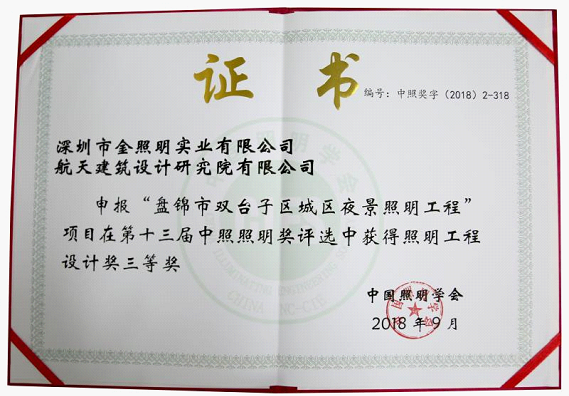 证 书
编号：中照奖字（2018）2-318
深圳市金照明实业有限公司
航天建筑设计研究院有限公司
申报“盘锦市双台子区城区夜景照明工程”
项目在第十三届中照照明奖评选中获得照明工程
设计奖三等奖
中国照明学会
2018 年 9 月